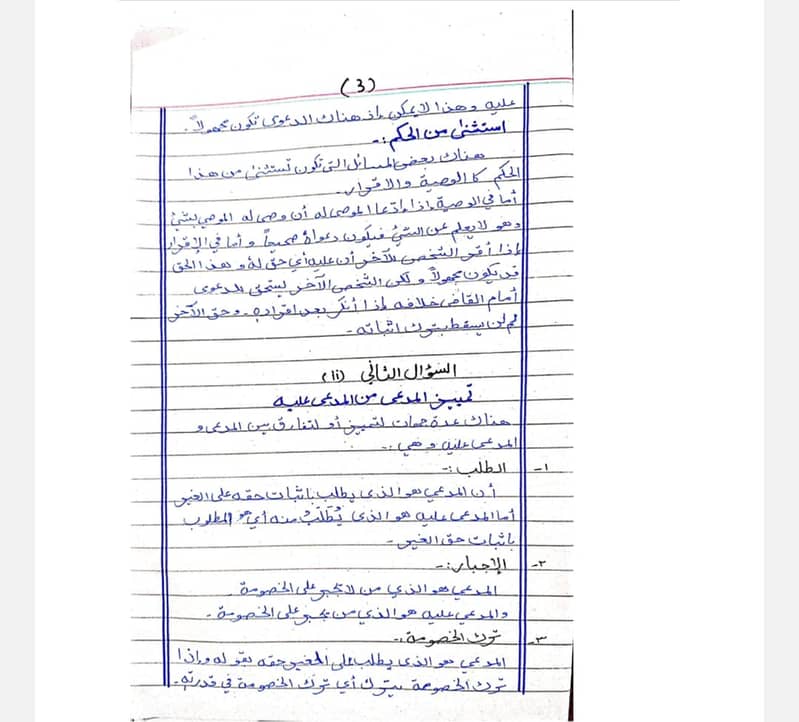 (3)
عليه وهذا لا يمكن إذ هناك الدعوى تكون مجهولاً.
استثنیٰ من الحكم:-
هناك بعض المسائل التي تكون تستثنیٰ من هذا
الحكم كا الوصية والاقرار-
أما في الوصية إذا إدعا الموصى له أن وصى له الموصي بشئ
وهو لا يعلم عن الشئ فيكون دعواهٗ صحيحاً و أما في الإقرار
إذا أقر الشخص للآخر أن عليه أي حق لهٗ و هذا الحق
قد يكون مجهولاً و لكن الشخص الآخر يستحق بالدعوى
أمام القاض خلافه إذا أنكر بعد اقراره - و حق الآخر
لن يسقط بترك اثباته -
السؤال الثاني (ii)
تمييز المدعى من المدعى عليه
هناك عدة جهات لتمييز أو لتفارق بين المدعى و
المدعى عليه و هي:-
١- الطلب:-
أن المدعي هو الذى يطلب باثبات حقه على الغير
أما المدعى عليه هو الذى يُطْلَبُ منه أي هو المطلوب
باثبات حق الغير -
٢- الإجبار:-
المدعي هو الذي من لا يجبر على الخصومة.
والمدعي عليه هو الذي من يجبر على الخصومة -
٣- ترك الخصومة:-
المدعي هو الذى يطلب على الغير حقه بقوله و إذا
ترك الخصومة يترك أي ترك الخصومة في قدرته -